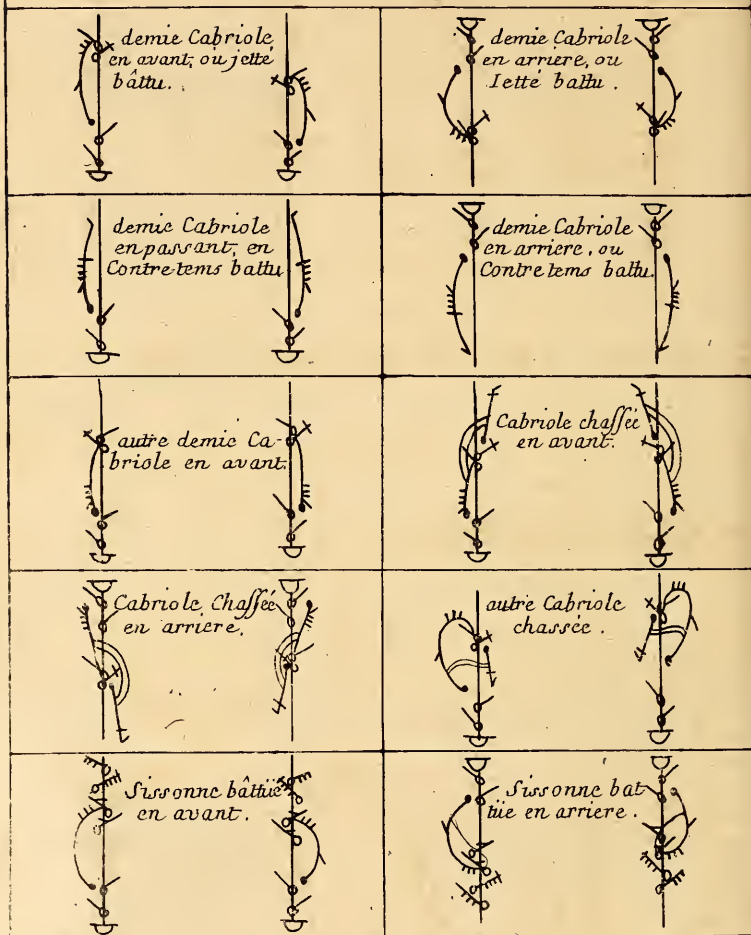 demie Cabriole
en avant, ou jetté
bâttu.
demie Cabriole
en arriere, ou
Ietté battu.
demie Cabriole
en passant, en
Contretems battu
demie Cabriole
en arriere, ou
Contretems battu.
autre demie Ca-
briole en avant.
Cabriole chassée
en avant.
Cabriole Chassée
en arriere,
autre Cabriole
chassée.
Sissonne bâttüe
en avant.
Sissonne bat
tüe en arriere.